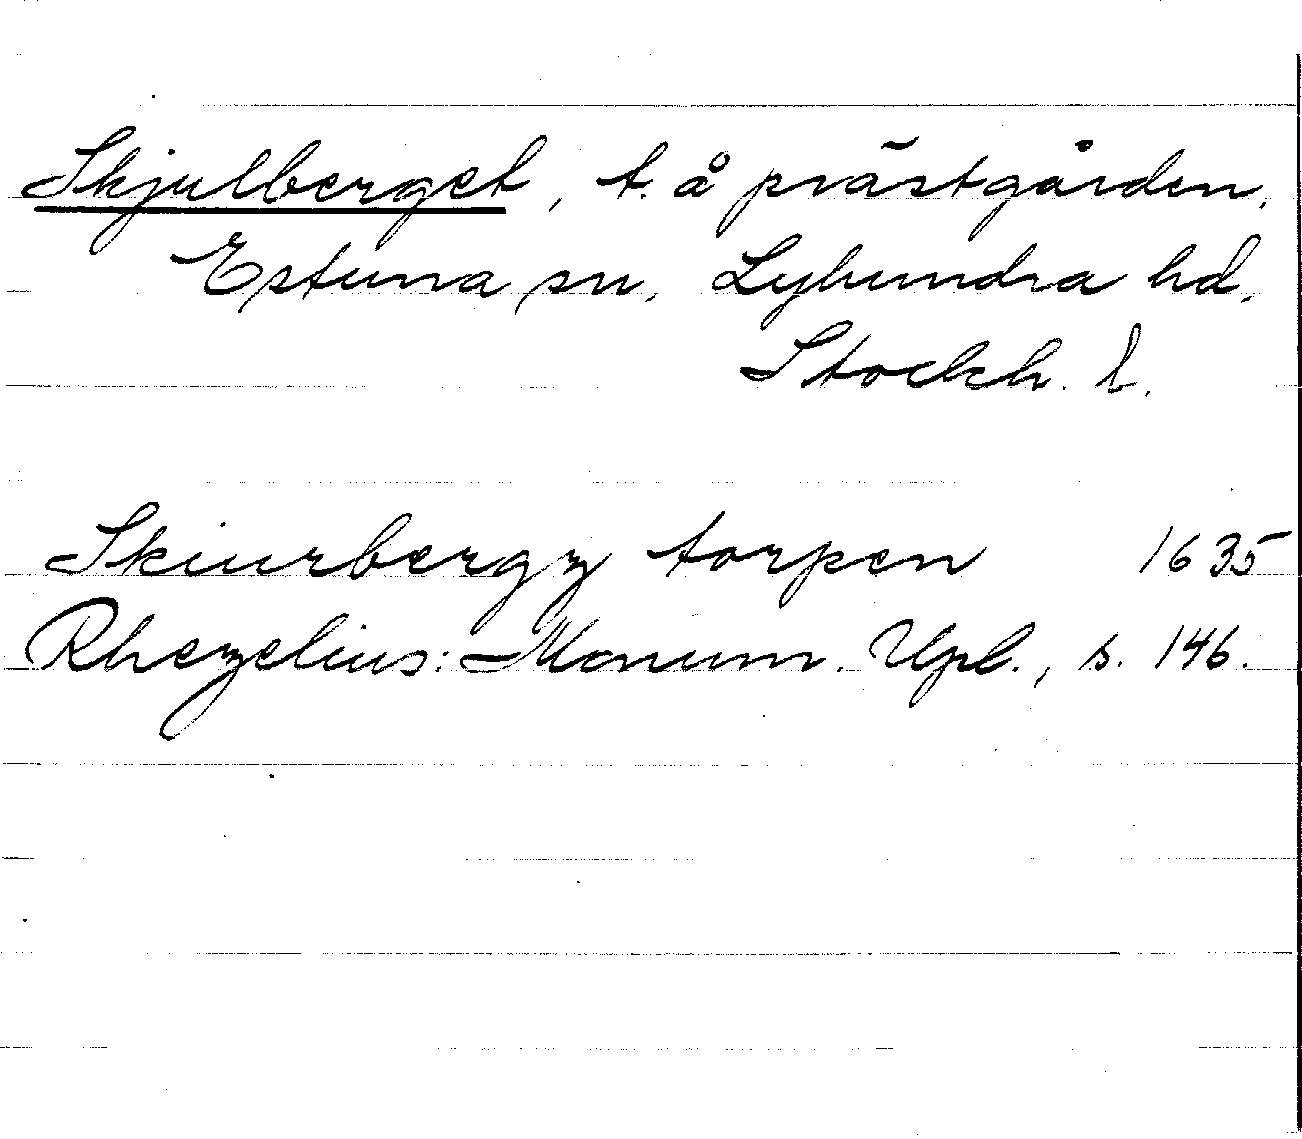 Skjulberget, t. å prästgården,
Estuna sn, Lyhundra hd,
Stockh. l.
Skiurbergz torpen 1635
Rhezelius: Monum. Upl., s. 146.